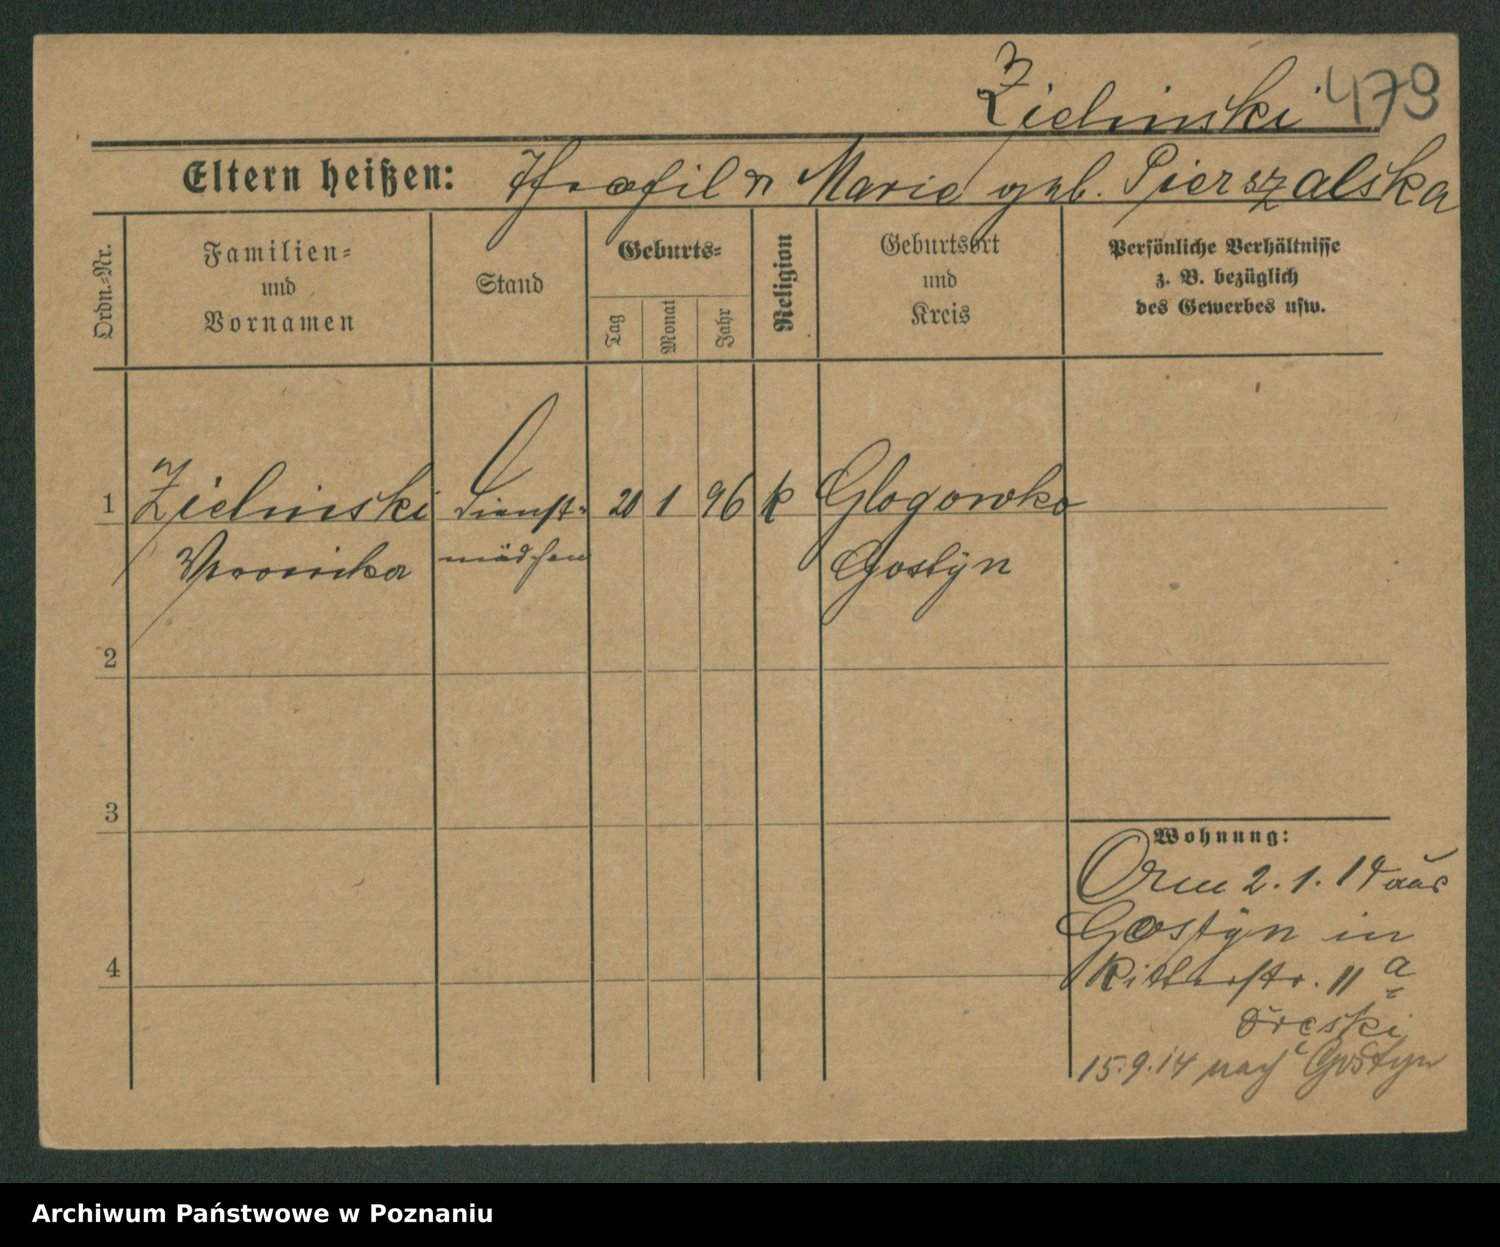 Zielinski 479
Eltern heißen: Theofil u Marie geb. Pierszalska
Ordn.-Nr.
Familien-
und
Vornamen
Stand
Geburts-
Tag
Monat
Jahr
Religion
Geburtsort
und
Kreis
Persönliche Verhältnisse
z. B. bezüglich
des Gewerbes usw.
1 Zielinski Dienst- 20 1 96 k Glogowko
Veronika mädchen Gostyn
2
3
Wohnung:
2.1.14 aus
Gostÿn in
4
Ritterstr. 11 a
b
15.9.14 nach Gostyn
Archiwum Państwowe w Poznaniu